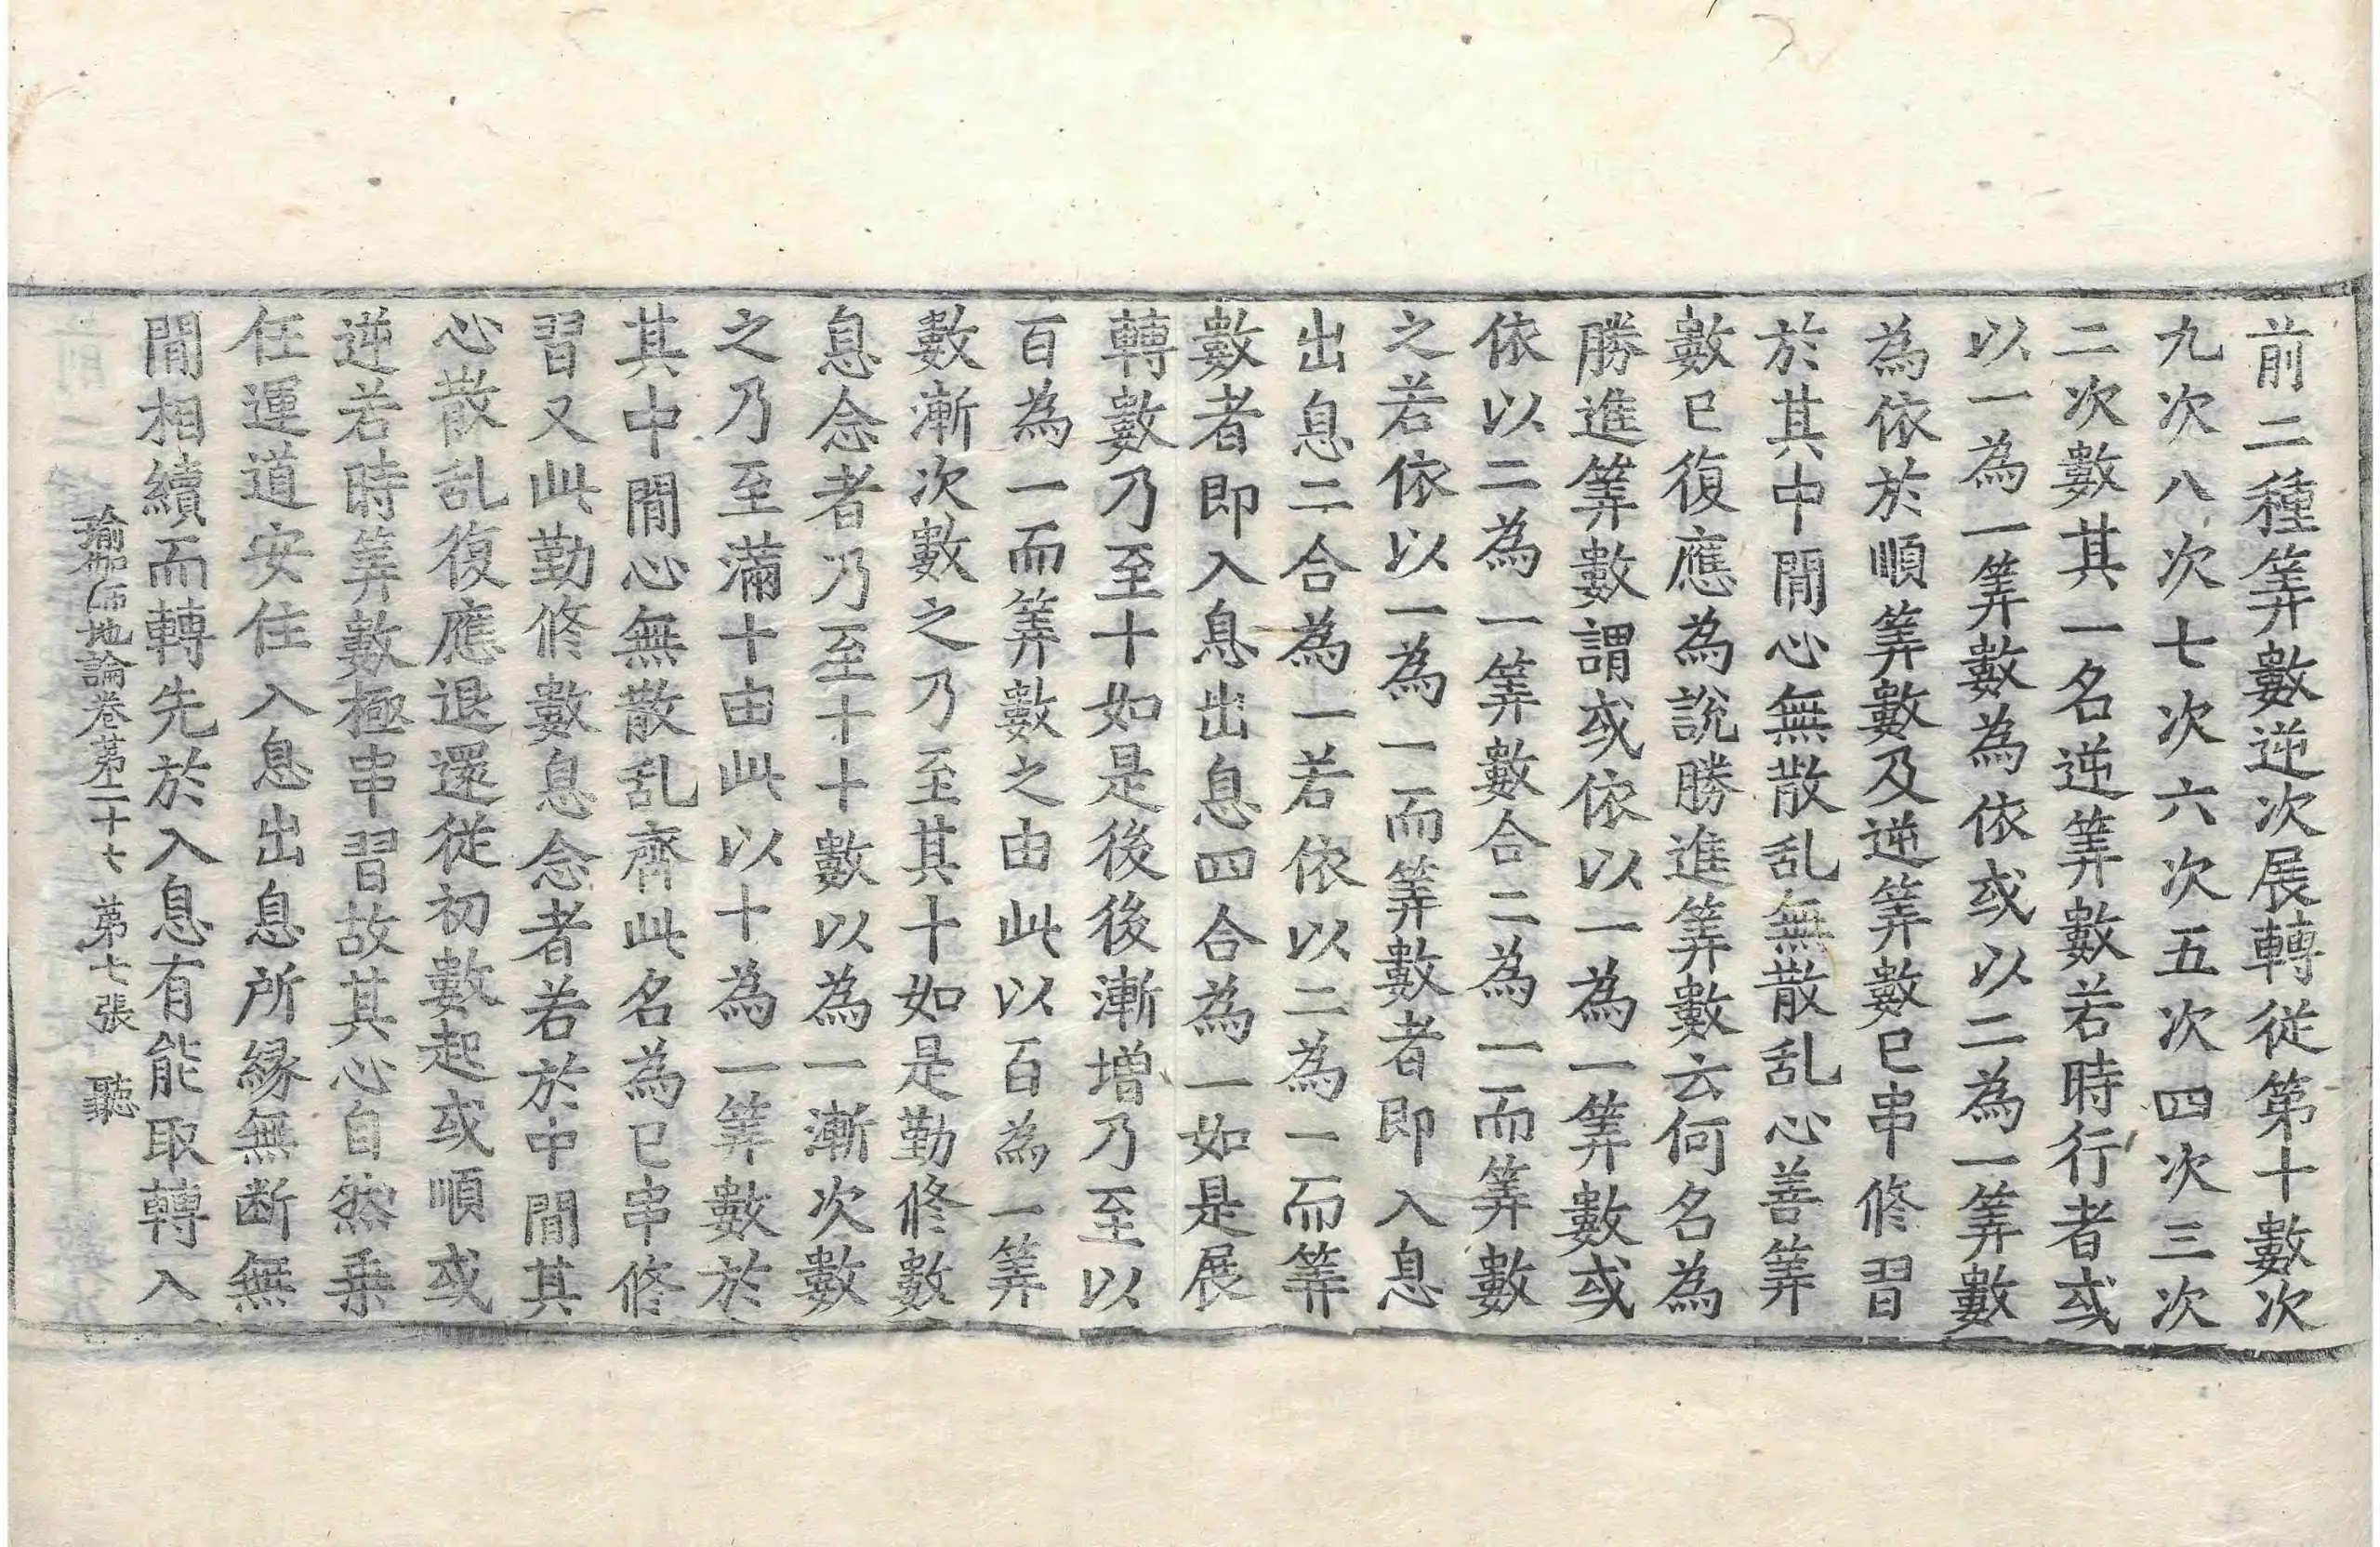 前二種筭數逆次展轉從第十數次
九次八次七次六次五次四次三次
二次數其一名逆筭數若時行者或
以一為一筭數為依或以二為一筭數
為依於順筭數及逆筭數已串修習
於其中間心無散乱無散乱心善筭
數已復應為說勝進筭數云何名為
勝進筭數謂或依以一為一筭數或
依以二為一筭數合二為一而筭數
之若依以一為一而筭數者即入息
出息二合為一若依以二為一而筭
數者即入息出息四合為一如是展
轉數乃至十如是後後漸增乃至以
百為一而筭數之由此以百為一筭
數漸次數之乃至其十如是勤修數
息念者乃至十十數以為一漸次數
之乃至滿十由此以十為一筭數於
其中間心無散乱齊此名為已串修
習又此勤修數息念者若於中間其
心散乱復應退還從初數起或順或
逆若時筭數極串習故其心自然乗
任運道安住入息出息所縁無断無
間相續而轉先於入息有能取轉入
瑜伽師地論卷第二十七 第七張 聽